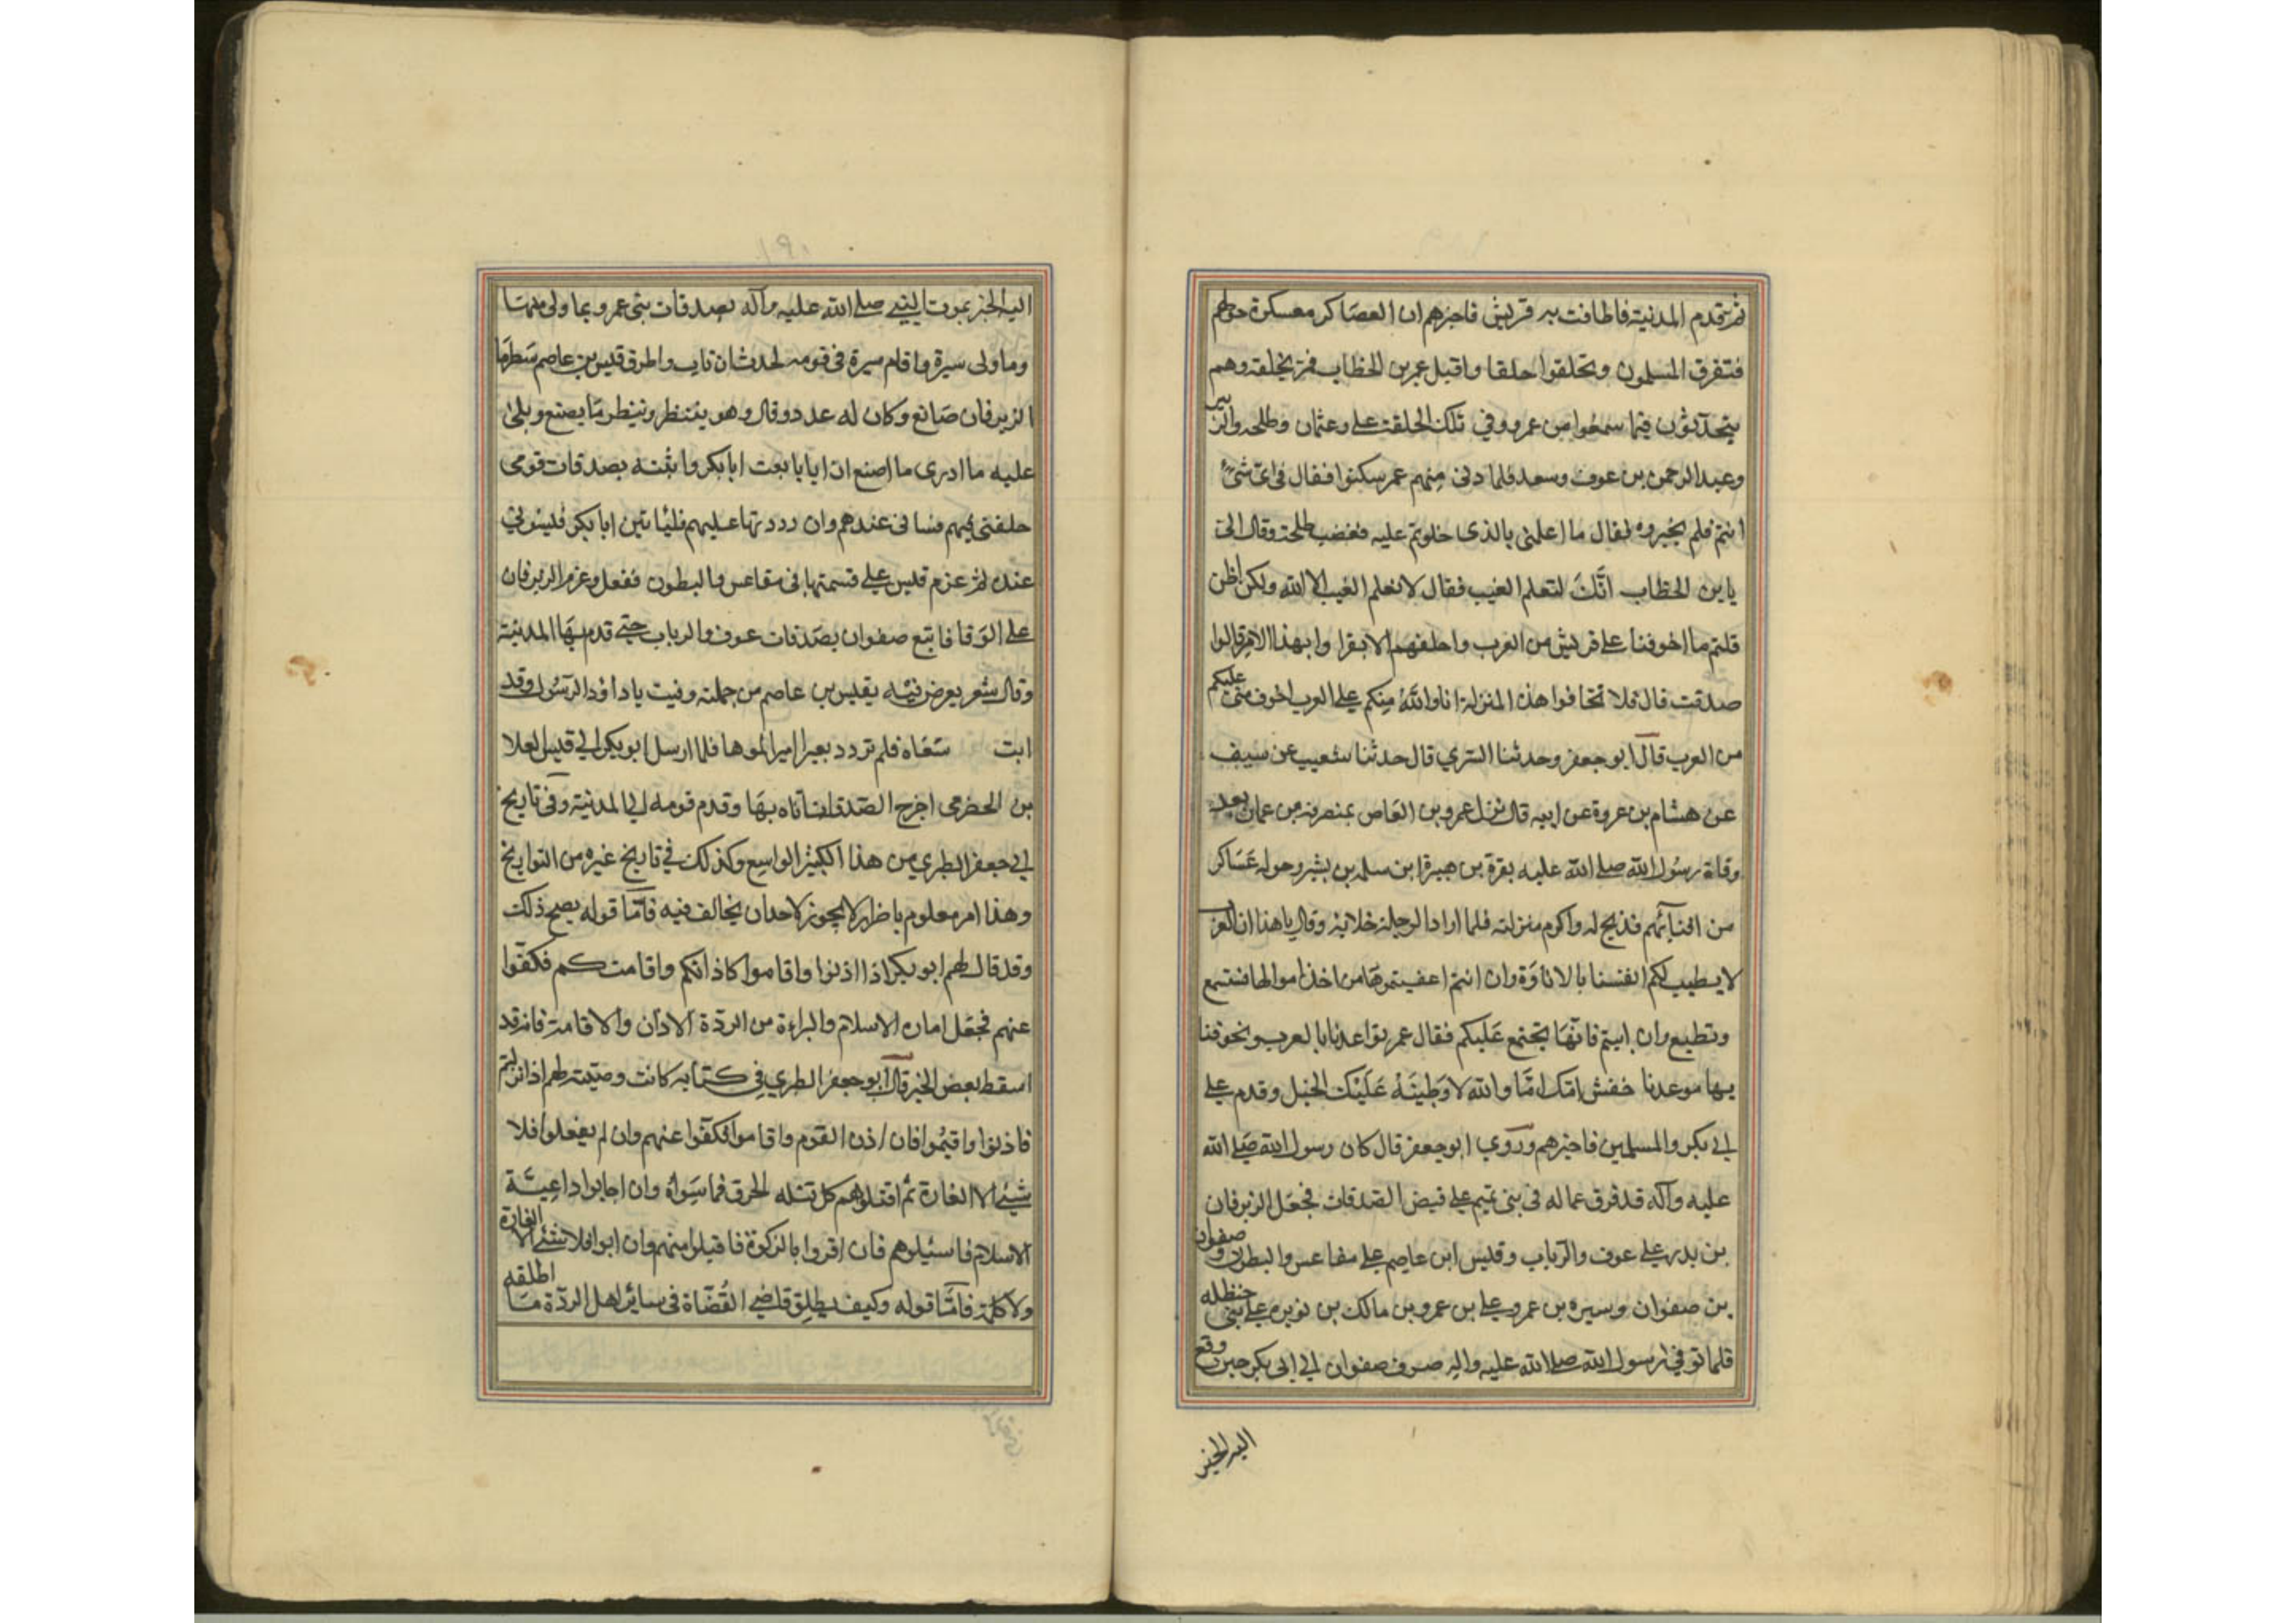 ثم تقدم المدنية فاطافت به قريش فاخبرهم ان العصاكر معسكرة حولهم
فتفرق المسلمون وتحلقوا حلقا واقبل عمر بن الخطاب فمر بحلقة وهم
يتحدثون فيما سمعوا من عمرو وفي تلك الحلقة علي وعثمان وطلحة والزبير
وعبد الرحمن بن عوف وسعد فلما دنى منهم عمر سكتوا فقال في اي شيء
انتم فلم يخبروه فقال ما اعلمني بالذي خلوتم عليه فغضب طلحة وقال
يا بن الخطاب انك لتعلم الغيب فقال لا نعلم الغيب الا الله ولكن اظن
قلتم ما اخوفنا على قريش من العرب واحلفهم الا بقرا وابهذا الامر قالوا
صدقت قال فلا تخافوا هذه المنزلة انا والله منكم على العرب اخوف مني عليكم
من العرب قال ابو جعفر وحدثنا السري قال حدثنا شعيب عن سيف
عن هشام بن عروة عن ابيه قال نزل عمرو بن العاص بمنصرفه من عمان بعد
وفاة رسول الله صلى الله عليه بقرة بن هبيرة ابن سلمه بن بشير وحوله عساكر
من افنائهم فذبح له واكرم منزلته فلما اراد الرحلة خلا به وقال يا هذا ان العرب
لا يطيب لكم انفسنا بالاتاوة وان انتم اعفيتموها من اخذ اموالها فتسمع
وتطيع وان ابيتم فانها تجتمع عليكم فقال عمر تواعدنا بالعرب وتخوفنا
بها موعدنا خفش امك اما والله لاوطينه عليك الخيل وقدم على
ابي بكر والمسلمين فاخبرهم وروي ابو جعفر قال كان رسول الله صلى الله
عليه وآله قد فرق عماله في بني تميم على قبض الصدقات فجعل الزبرقان
بن بدر على عوف والرباب وقيس ابن عاصم على مقاعس والبطون وصفوان
بن صفوان وسبره بن عمرو على بن عمرو بن مالك بن نويره على بني حنظله
فلما توفي رسول الله صلى الله عليه واله صرف صفوان الى ابي بكر حين وقع
اليه الخبر
اليه الخبر بموت النبي صلى الله عليه وآله بصدقات بني عمرو بما ولى منها
وما ولى سبرة واقام سبرة في قومه لحدث ان ناب واطرق قيس بن عاصم ينظر ما
الزبرقان صانع وكان له عدد وقال وهو ينتظر وينظر ما يصنع ويلي
عليه ما ادري ما اصنع ان ايا بايعت ابا بكر واتيته بصدقات قومي
خلفني فيهم فساني عندهم وان رددتها عليهم فلياتين ابا بكر فليسوني
عنده ثم عزم قيس على قسمتها في مقاعس والبطون ففعل وعزم الزبرقان
على الوفا فاتبع صفوان بصدقات عوف والرباب حتى قدم بها المدنية
وقال شعر يعرض فيه بقيس بن عاصم من جملته وفيت باداود الرسول وقد
ابت سعاة فلم تردد بعيرا اميرا لموها فلما ارسل ابو بكر الى قيس العلا
بن الحضرمي اخرج الصدقات فاتاه بها وقدم قومه الى المدنية وفي تاريخ
ابي جعفر الطبري من هذا الكثير الواسع وكذلك في تاريخ غيره من التواريخ
وهذا امر معلوم باضرار لا يجوز لاحد ان يخالف فيه فاما قوله يصح ذلك
وقد قال لهم ابو بكر اذا اذنوا واقاموا كاذانكم واقامتكم فكفوا
عنهم فجعل امان الاسلام والبراءة من الردة الاذان والاقامة فانه قد
اسقط بعض الخبر قال ابو جعفر الطبري في كتابه كانت وصيته لهم اذا نزلتم
فاذنوا واقيموا فان اذن القوم واقاموا فكفوا عنهم وان لم يفعلوا فلا
شيء الا الغارة ثم اقتلوهم كل قتله الحرق فما سواه وان اجابوا داعية
الاسلام فاسئلوهم فان اقروا بالزكوة فاقبلوا منهم وان ابوا فلا شيء الا الغارة
ولا كلمة فاما قوله وكيف يطلق قاضي القضاة في سائر اهل الردة ما اطلقه